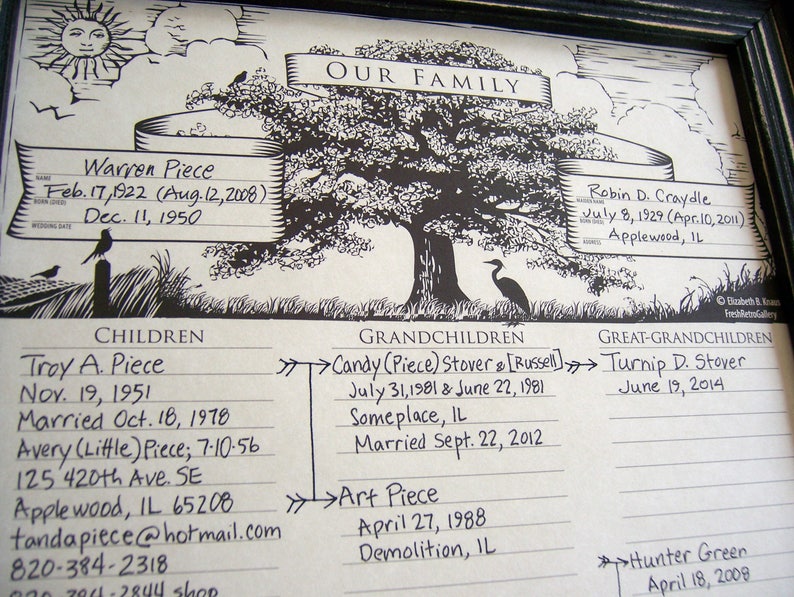 OUR FAMILY
Warren Piece
NAME
Feb. 17, 1922 (Aug. 12, 2008)
BORN (DIED)
Dec. 11, 1950
WEDDING DATE
Robin D. Craydle
MAIDEN NAME
July 8, 1929 (Apr. 10, 2011)
BORN (DIED)
Applewood, IL
ADDRESS
© Elizabeth B. Knaus
FreshRetroGallery
CHILDREN
Troy A. Piece
Nov. 19, 1951
Married Oct. 18, 1978
Avery (Little) Piece; 7-10-56
125 420th Ave. SE
Applewood, IL 65208
tandapiece@hotmail.com
820-384-2318
820-384-2844 shop
GRANDCHILDREN
Candy (Piece) Stover & [Russell]
July 31, 1981 & June 22, 1981
Someplace, IL
Married Sept. 22, 2012
Art Piece
April 27, 1988
Demolition, IL
GREAT-GRANDCHILDREN
Turnip D. Stover
June 19, 2014
Hunter Green
April 18, 2008